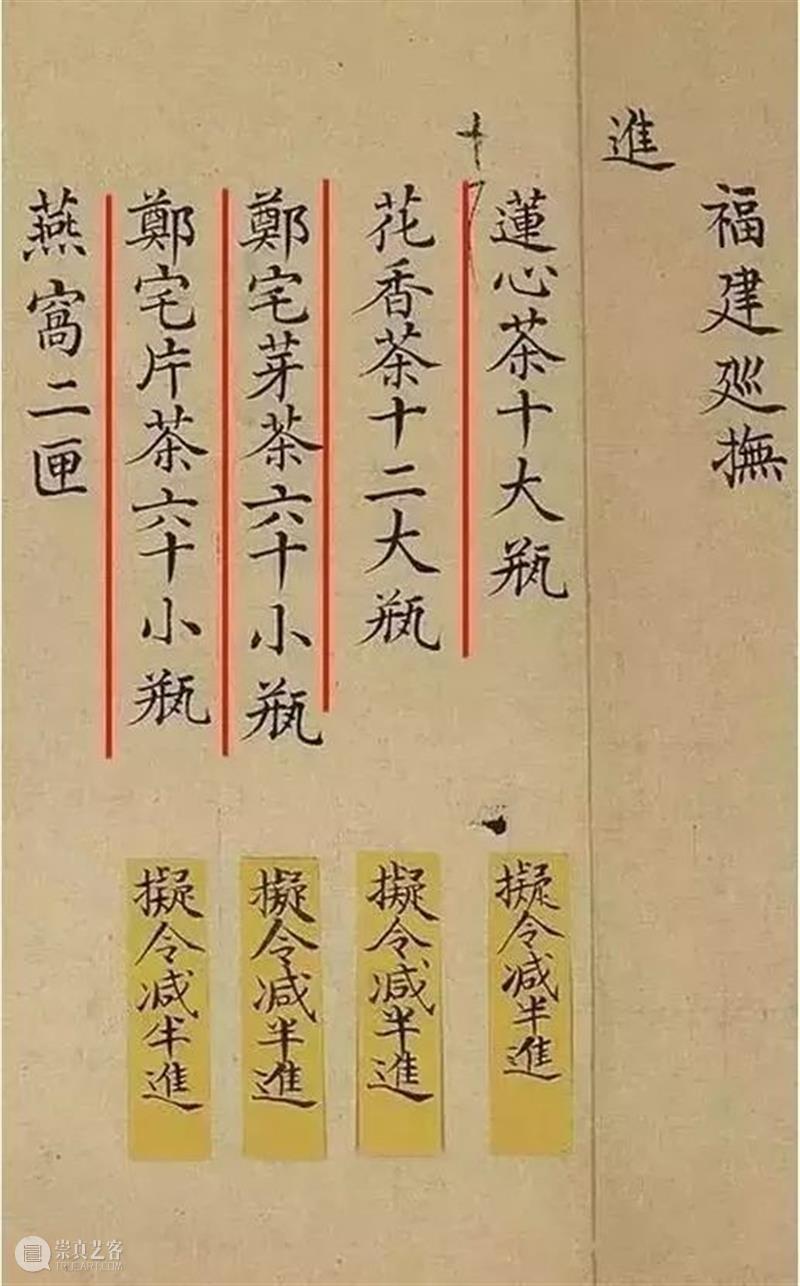 福建廵撫
進
蓮心茶十大瓶
花香茶十二大瓶
鄭宅芽茶六十小瓶
鄭宅片茶六十小瓶
燕窩二匣
擬令减半進
擬令减半進
擬令减半進
擬令减半進
崇真艺客
TRUEART.COM